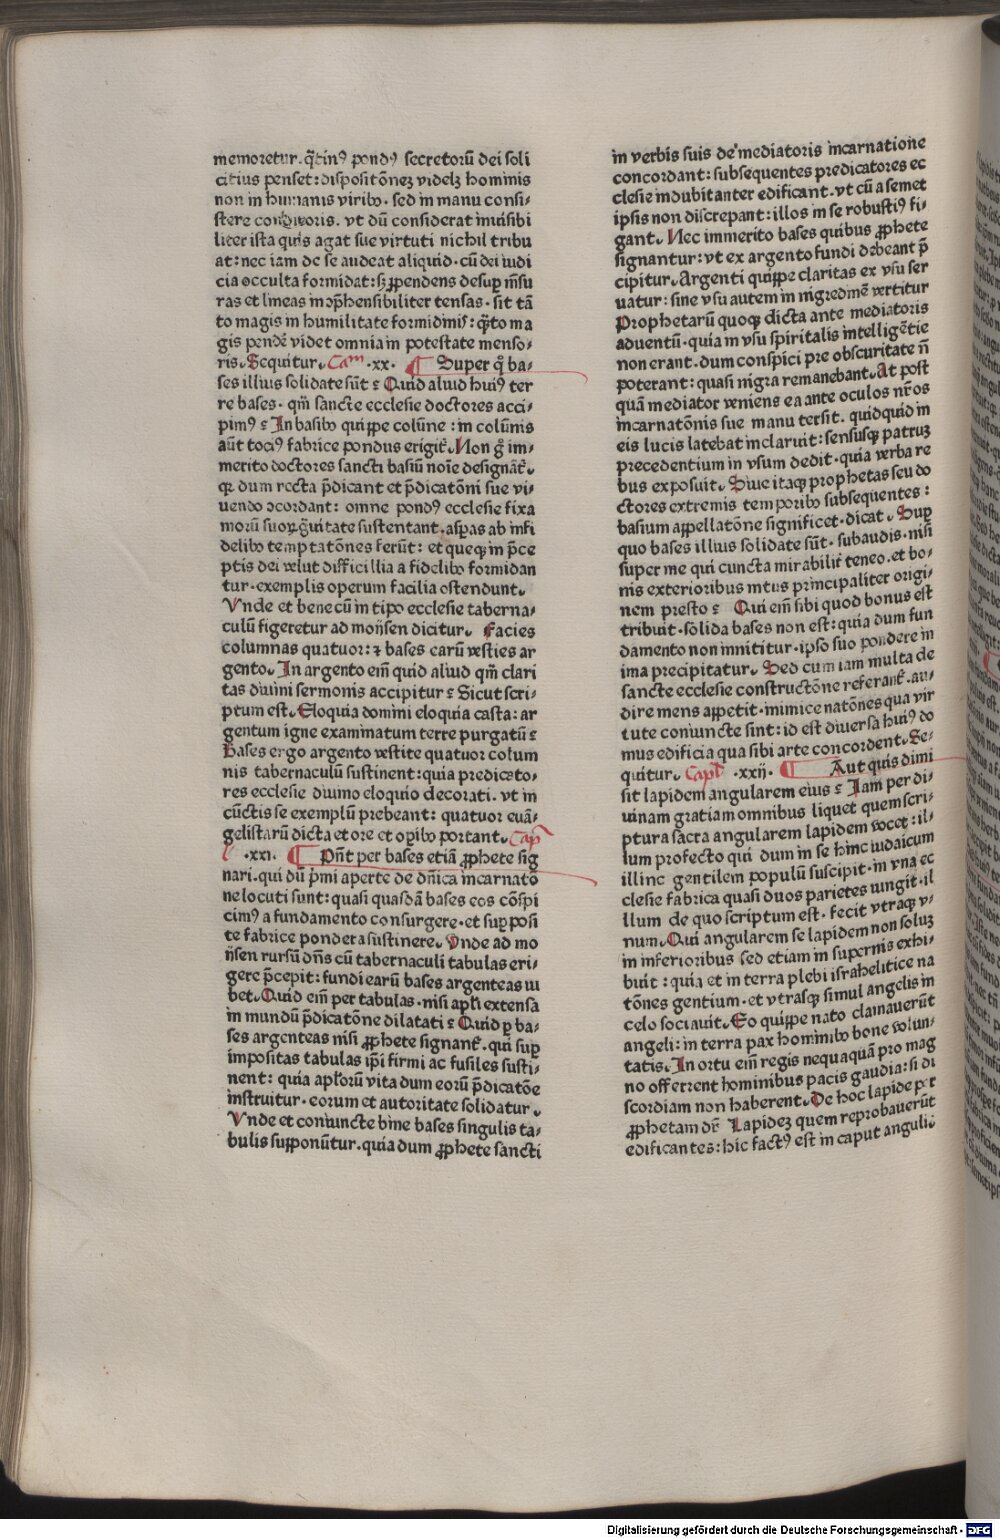 memoretur. q̃tinꝰ pondꝰ secretorū dei soli
citius penset: dispositōneꝫ videlꝫ hominis
non in humanis viribꝰ. sed in manu consi⸗
stere conditoris. vt dū considerat inuisibi
liter ista quis agat sue virtuti nichil tribu
at: nec iam de se audeat aliquid. cū dei iudi
cia occulta formidat: sꝫ ꝓpendens desuꝑ mẽsu
ras et lineas incōp̄hensibiliter tensas. sit tā
to magis in humilitate formidinis: q̃to ma
gis pendẽ videt omnia in potestate menso⸗
ris. Sequitur. Cam .xx. ¶ Super q̄ ba⸗
ses illius solidate sūt? Quid aliud huiꝰ ter
re bases. qm̄ sancte ecclesie doctores acci⸗
pimꝰ? In basibꝰ quippe colūne: in colūnis
aūt tociꝰ fabrice pondus erigit̄. Non ḡ im⸗
merito doctores sancti basiū noīe designāt̄.
qꝛ dum recta p̄dicant et p̄dicatōni sue vi⸗
uendo ↄcordant: omne pondꝰ ecclesie fixa
morū suoꝝ grauitate sustentant. asꝑas ab infi
delibꝰ temptatōnes ferūt: et queqꝫ in p̄ce
ptis dei velut difficillia a fidelibꝰ formidan
tur. exemplis operum facilia ostendunt.
Vnde et bene cū in tipo ecclesie taberna⸗
culū figeretur ad moysen dicitur. Facies
columnas quatuor: ⁊ bases earū vesties ar
gento. In argento eīm quid aliud qm̄ clari
tas diuini sermonis accipitur? Sicut scri⸗
ptum est. Eloquia domini eloquia casta: ar
gentum igne examinatum terre purgatū?
Bases ergo argento vestite quatuor colum
nis tabernaculū sustinent: quia predicato⸗
res ecclesie diuino eloquio decorati. vt in
cūctis se exemplū prebeant: quatuor euā⸗
gelistarū dicta et ore et oꝑibꝰ portant. Cap
l .xxi. ¶ Pn̄t per bases etiā ꝓphete sig
nari. qui dū p̄mi aperte de dn̄ica incarnatō
ne locuti sunt: quasi quasdā bases eos cōspi
cimꝰ a fundamento consurgere. et suꝑ posi
te fabrice pondera sustinere. Vnde ad mo
ysen rursū dn̄s cū tabernaculi tabulas eri⸗
gere p̄cepit: fundi earū bases argenteas iu
bet. Quid eīm per tabulas. nisi apl̄i extensa
in mundū p̄dicatōne dilatati? Quid ꝑ ba⸗
ses argenteas nisi ꝓphete signant̄. qui suꝑ
impositas tabulas ip̄i firmi ac fusiles susti⸗
nent: quia apl̄orū vita dum eorū p̄dicatōe
instruitur. eorum et autoritate solidatur.
Vnde et coniuncte bine bases singulis ta⸗
bulis supponūtur. quia dum ꝓphete sancti
in verbis suis de mediatoris incarnatione
concordant: subsequentes predicatores ec
clesie indubitanter edificant. vt cū a semet
ipsis non discrepant: illos in se robustiꝰ fi⸗
gant. Nec immerito bases quibus ꝓphete
signantur: vt ex argento fundi debeant p̄
cipitur. Argenti quippe claritas ex vsu ser
uatur: sine vsu autem in nigredinē vertitur
Prophetarū quoqꝫ dicta ante mediatoris
aduentū. quia in vsu spiritalis intelligētie
non erant. dum conspici pre obscuritate n̄
poterant: quasi nigra remanebant. At post
quā mediator veniens ea ante oculos nr̄os
incarnatōnis sue manu tersit. quidquid in
eis lucis latebat inclaruit: sensusqꝫ patruꝫ
precedentium in vsum dedit. quia verba re
bus exposuit. Siue itaqꝫ prophetas seu do
ctores extremis temporibꝰ subsequentes:
basium appellatōne significet. dicat. Suꝑ
quo bases illius solidate sūt. subaudis. nisi
super me qui cuncta mirabilit̄ teneo. et bo⸗
nis exterioribus intus principaliter origi⸗
nem presto? Qui eīm sibi quod bonus est
tribuit. solida bases non est: quia dum fun
damento non innititur. ipso suo pondere in
ima precipitatur. Sed cum iam multa de
sancte ecclesie constructōne referant̄. au⸗
dire mens appetit. inimice natōnes qua vir
tute coniuncte sint: id est diuersa huiꝰ do
mus edificia qua sibi arte concordent. Se⸗
quitur. Capl̄ .xxij. ¶ Aut quis dimi
sit lapidem angularem eius? Iam per di⸗
uinam gratiam omnibus liquet quem scri⸗
ptura sacra angularem lapidem vocet: il⸗
lum profecto qui dum in se hinc iudaicum
illinc gentilem populū suscipit. in vna ec
clesie fabrica quasi duos parietes iungit. il
llum de quo scriptum est. fecit vtraqꝫ v⸗
num. Qui angularem se lapidem non soluꝫ
in inferioribus sed etiam in supernis exhi⸗
buit: quia et in terra plebi israhelitice na
tōnes gentium. et vtrasqꝫ simul angelis in
celo sociauit. Eo quippe nato clamauerūt
angeli: in terra pax hominibꝰ bone volun⸗
tatis. In ortu eīm regis nequaquā pro mag
no offerrent hominibus pacis gaudia: si di
scordiam non haberent. De hoc lapide per
ꝓphetam dr̄ Lapideꝫ quem reprobauerūt
edificantes: hic factꝰ est in caput anguli.
Digitalisierung gefördert durch die Deutsche Forschungsgemeinschaft - DFG